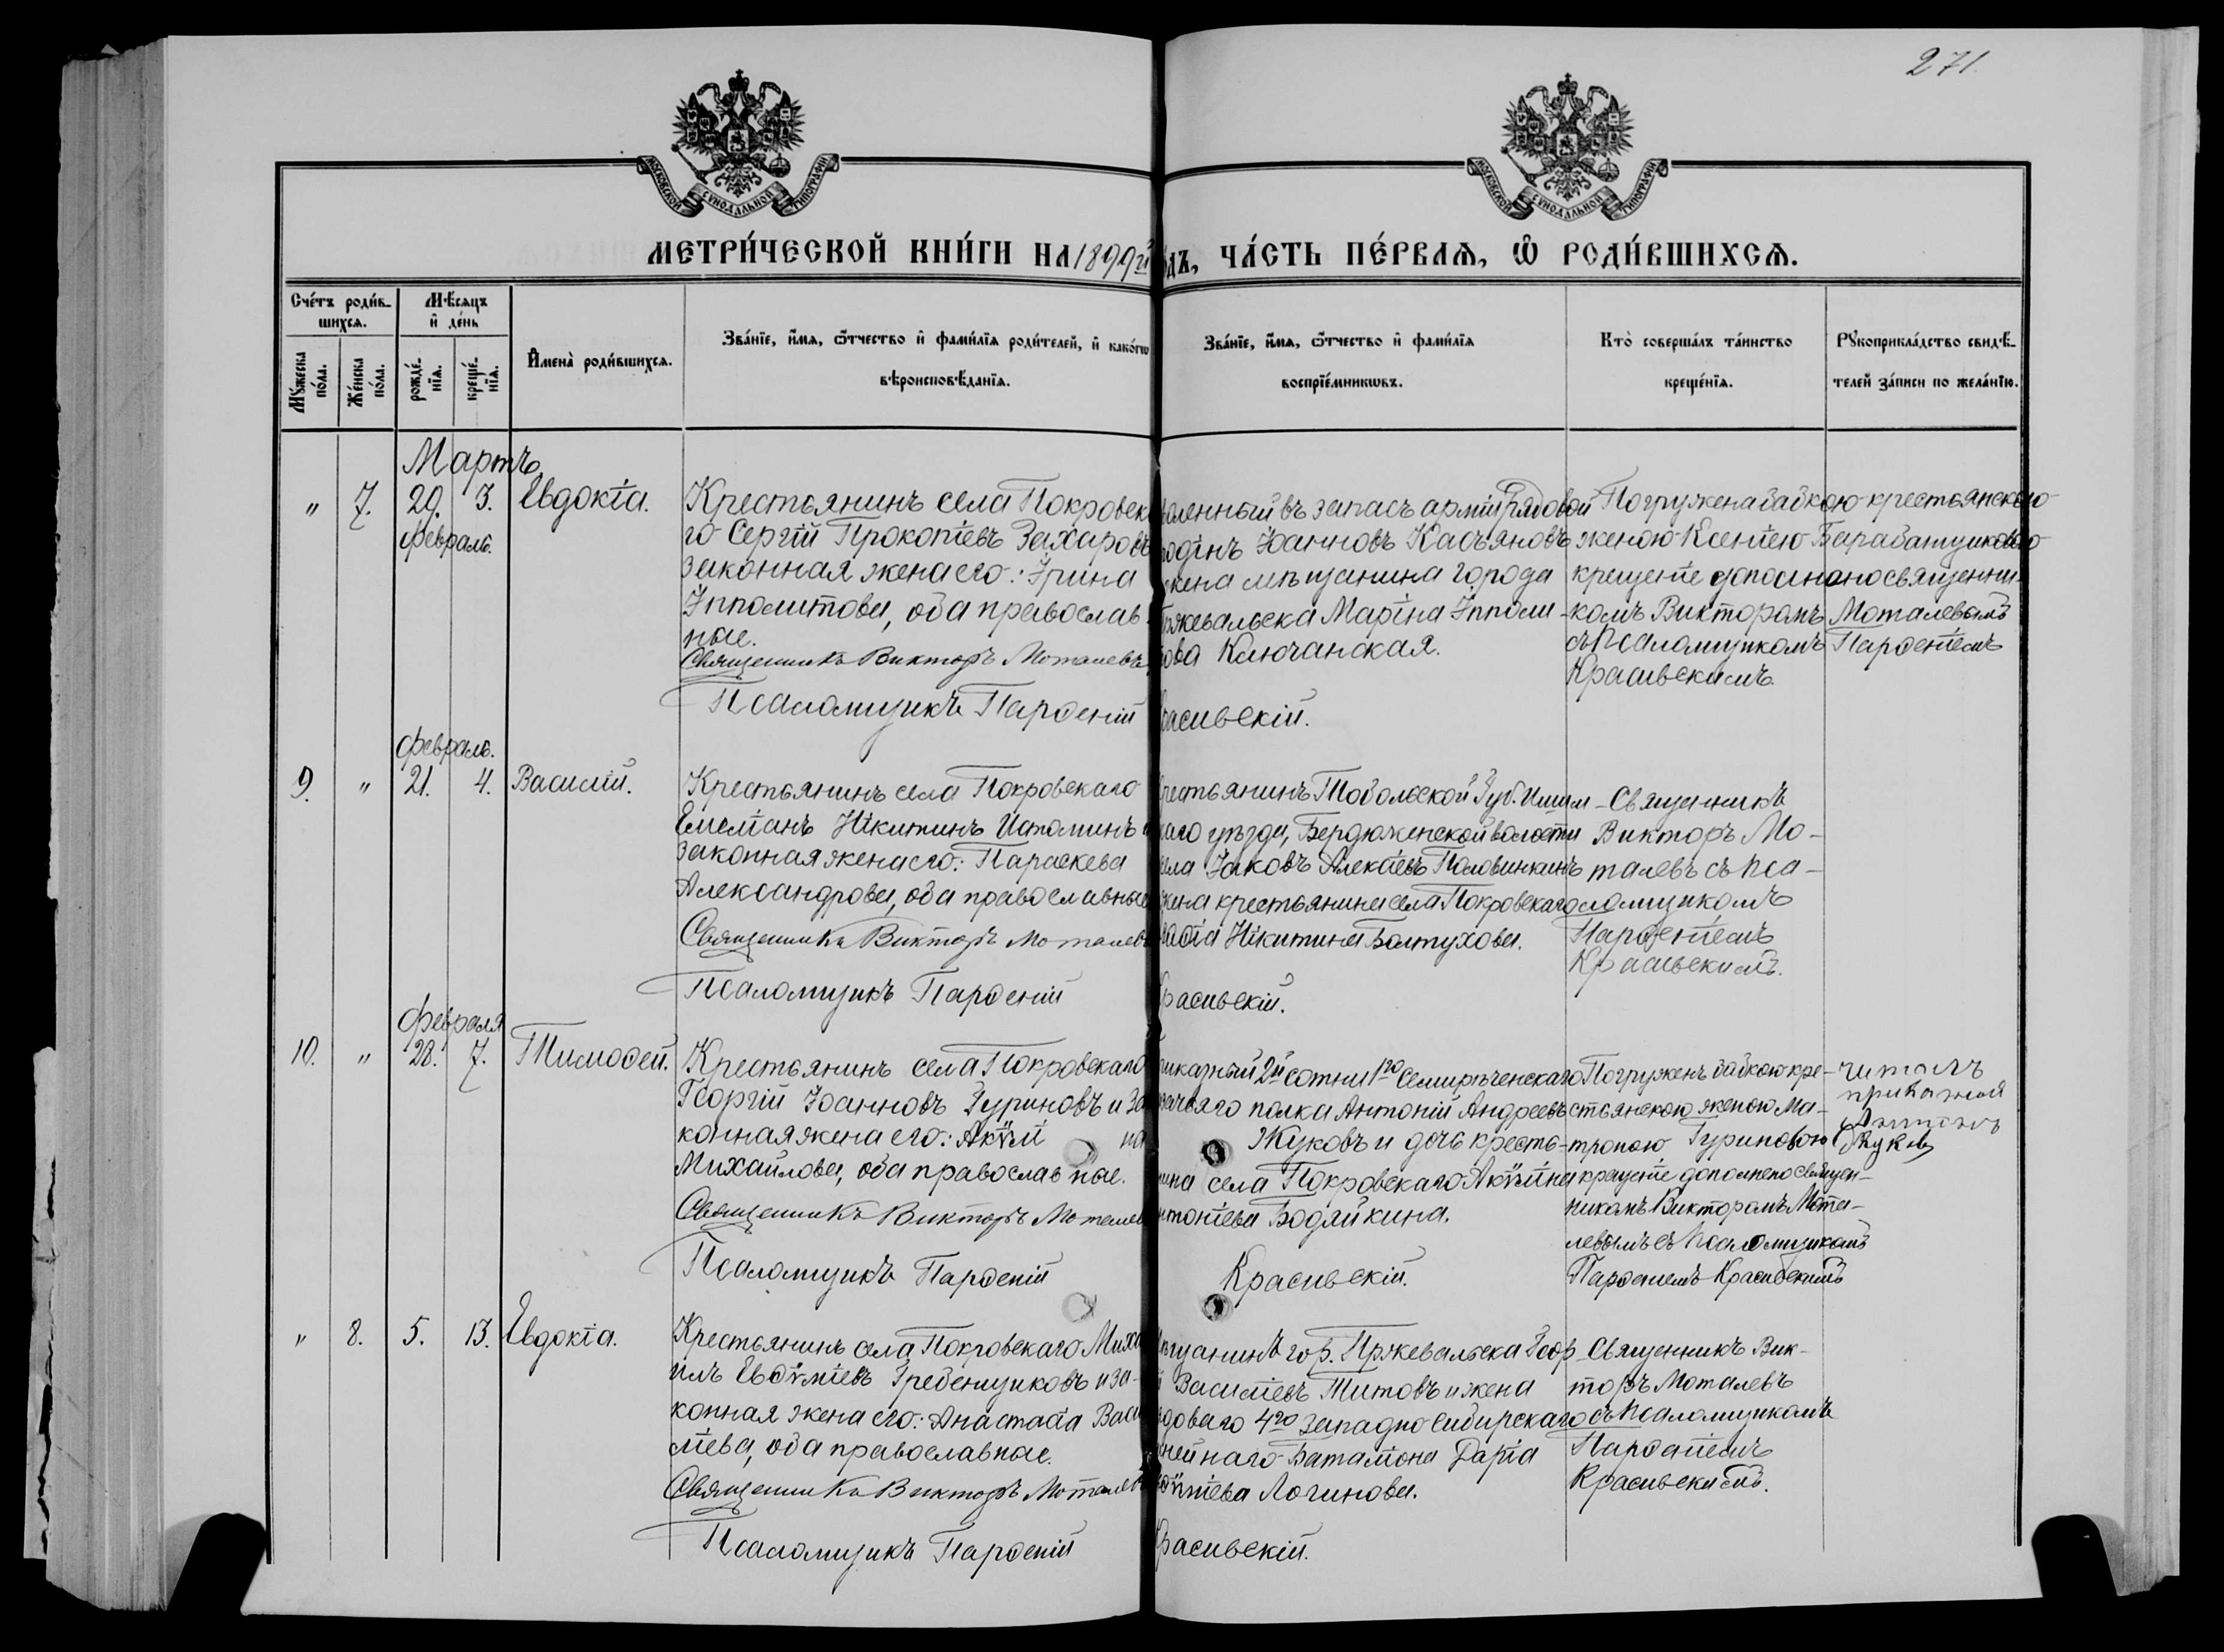 271.
МОСКОВСКОЙ СѴНОДАЛЬНОЙ ТИПОГРАФИИ
МОСКОВСКОЙ СѴНОДАЛЬНОЙ ТИПОГРАФИИ
МЕТРИ́ЧЕСКОЙ КНИ́ГИ НА 1899й
дъ, ЧА́СТЬ ПЕ́РВАѦ, Ѡ҆ РОДИ́ВШИХСѦ.
Сче́тъ роди́в-
шихсѧ.
Мꙋ́жеска по́ла.
Же́нска по́ла.
Мѣ́сѧцъ
и҆ де́нь
рожде́-нїѧ.
креще́-нїѧ.
И҆мена̀ роди́вшихсѧ.
Зва́нїе, и҆́мѧ, ѻ҆́тчество и҆ фами́лїѧ роди́телей, и҆ како́гѡ
вѣроисповѣ́данїѧ.
Зва́нїе, и҆́мѧ, ѻ҆́тчество и҆ фами́лїѧ
воспрїе́мникѡвъ.
Кто̀ соверша́лъ та́инство
креще́нїѧ.
Рꙋкоприкла́дство свидѣ́-
телей за́писи по жела́нїю.
Мартъ
" 7. 29. 3. Евдокіа.
февраль.
Крестьянинъ села Покровска
го Сергій Прокопіевъ Захаровъ
законная жена его: Ірина
Ипполитова, оба православ
ные.
Священникъ Викторъ Моталевъ
Псаломщикъ Парѳеній
воленный въ запасъ арміи рядовой
родінъ Іоанновъ Касьяновъ
жена мѣщанина города
ржевальска Маріна Ипполи-
това Ключанская.
расивскій.
Погружена бабкою крестьянскою
женою Ксеніею Барабанщиковою
крещеніе дополнено священни-
комъ Викторомъ Моталевымъ
съ псаломщикомъ Парѳеніемъ
Красивскимъ.
февраль.
9. " 21. 4. Василій.
Крестьянинъ села Покровскаго
Емеліанъ Нікитинъ Истоминъ
законная жена его: Параскева
Александрова, оба православные
Священникъ Викторъ Моталевъ
Псаломщикъ Парѳеній
рестьянинъ Тобольской Губ. Ишим-
каго уѣзда, Бердюженской волости
села Іаковъ Алексіевъ Половинкинъ
жена крестьянина села Покровскаго
Нікитина Болтухова.
расивскій.
Священникъ
Викторъ Мо-
талевъ съ пса-
ломщикомъ
Парѳеніемъ
Красивскимъ.
февраля
10. " 28. 7. Тимоѳей.
Крестьянинъ села Покровскаго
Георгій Іоанновъ Гуриновъ и за
конная жена его: Акѵли на
Михайлова, оба православ ные.
Священникъ Викторъ Моталевъ
Псаломщикъ Парѳеній
риказный 2й сотни 1го Семирѣченскаго
зачьяго полка Антоній Андреевъ
Жуковъ и дочь кресть-
нина села Покровскаго Акѵлина
нтоніева Бодяйкина.
Красивскій.
Погруженъ бабкою кре-
стьянскою женою Ма-
троною Гуриновою
крещеніе дополнено священ-
никомъ Викторомъ Мота-
левымъ съ псаломщикомъ
Парѳеніемъ Красивскимъ
читалъ
приказной
Антонъ
Жуковъ
" 8. 5. 13. Евдокіа.
Крестьянинъ села Покровскаго Миха
илъ Евѳѵміевъ Гребенщиковъ и за-
конная жена его: Анастасіа Васи
ліева, оба православные.
Священникъ Викторъ Моталевъ
Псаломщикъ Парѳеній
ѣщанинъ гор. Пржевальска Геор
й Василіевъ Титовъ и жена
ядоваго 4го западно сибирскаго
нейнаго Баталіона Даріа
Логинова.
расивскій.
Священникъ Вик-
торъ Моталевъ
съ псаломщикомъ
Парѳеніемъ
Красивскимъ.